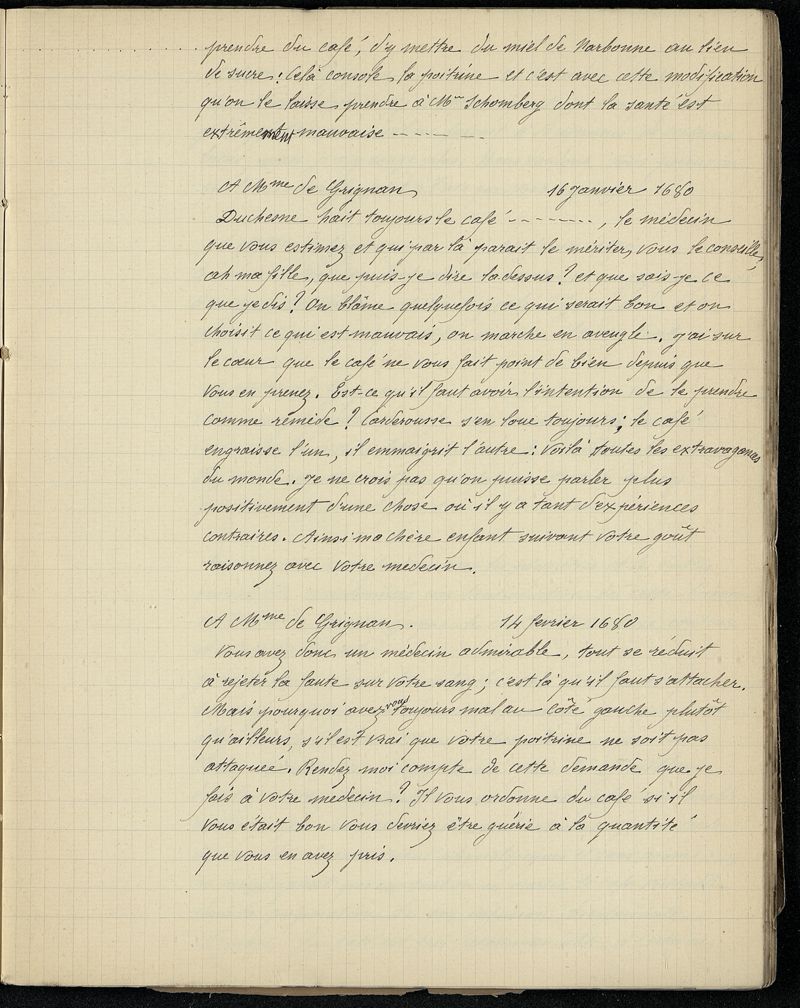 prendre du café, d'y mettre du miel de Narbonne au lieu
de sucre : Celà console la poitrine et c'est avec cette modification
qu'on le laisse prendre à Mme Schomberg dont la santé est
extrêmement mauvaise - - - - -
A Mme de Grignan 16 Janvier 1680
Duchesne hait toujours le café - - - - - - - -, le médecin
que vous estimez et qui par là parait le mériter, vous le conseille,
ah ma fille, que puis-je dire la dessus ? et que sais-je ce
que je dis ? On blâme quelquefois ce qui serait bon et on
choisit ce qui est mauvais, on marche en aveugle. j'ai sur
le cœur que le café ne vous fait point de bien depuis que
vous en prenez. Est-ce qu'il faut avoir l'intention de le prendre
comme remède ? Carderousse s'en loue toujours ; le café
engraisse l'un, il emmaigrit l'autre : Voilà toutes les extravagances
du monde. Je ne crois pas qu'on puisse parler plus
positivement d'une chose où il y a tant d'expériences
contraires. Ainsi ma chère enfant suivant votre goût
raisonnez avec votre medecin.
A Mme de Grignan. 14 fevrier 1680
Vous avez donc un médecin admirable, tout se réduit
à rejeter la faute sur votre sang ; c'est là qu'il faut s'attacher.
Mais pourquoi avez vous toujours mal au côté gauche plutôt
qu'ailleurs, s'il est vrai que votre poitrine ne soit pas
attaqueé. Rendez moi compte de cette demande que je
fais à votre medecin ? Il vous ordonne du café si il
vous était bon vous devriez être guérie à la quantité
que vous en avez pris.